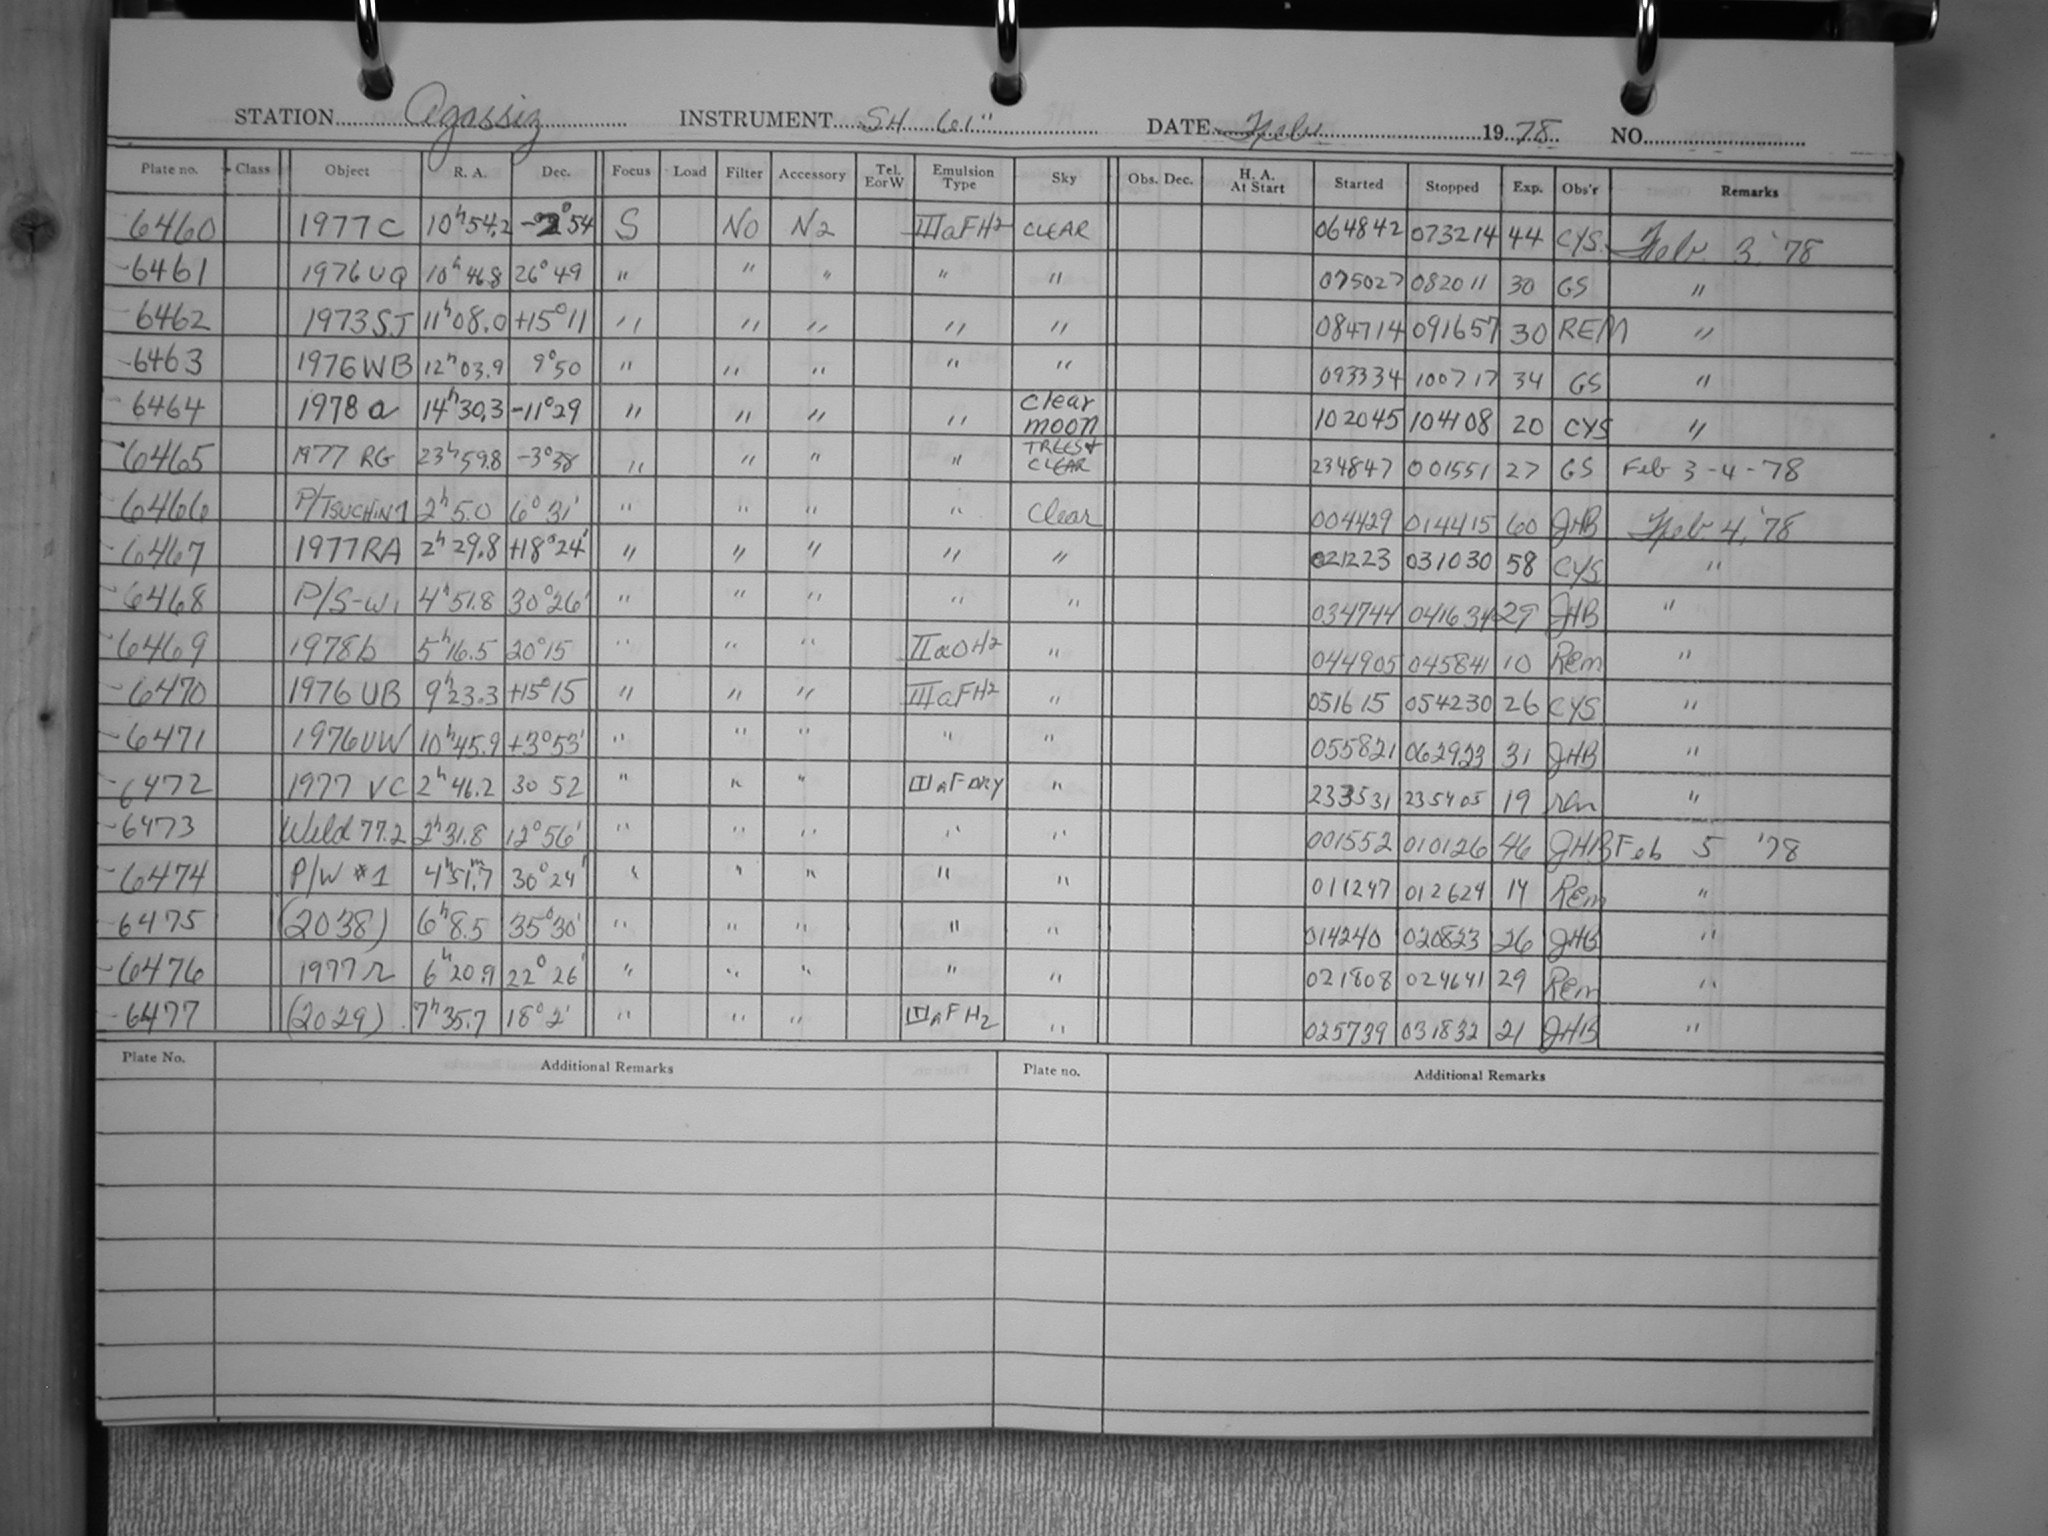 STATION Agassiz INSTRUMENT SH 61" DATE Feb 1978 NO.
Plate no. Class Object R. A. Dec. Focus Load Filter Accessory Tel. E or W Emulsion Type Sky Obs. Dec. H. A. At Start Started Stopped Exp. Obs'r Remarks
6460 1977 C 10h54.2 -2°54 S NO N2 IIIaFH2 CLEAR 064842 073214 44 CYS Feb. 3, '78
6461 1976 UQ 10h46.8 26°49 " " " " " 075027 082011 30 GS "
6462 1973 SJ 11h08.0 +15°11 " " " " " 084714 091657 30 REM "
6463 1976 WB 12h03.9 9°50 " " " " " 093334 100717 34 GS "
6464 1978 a 14h30.3 -11°29 " " " " clear moon 102045 104108 20 CYS "
6465 1977 RG 23h59.8 -3°38 " " " " TREES + CLEAR 234847 001551 27 GS Feb 3-4-78
6466 P/TSUCHIN 1 2h5.0 6°31' " " " " Clear 004429 014415 60 JHB Feb 4, '78
6467 1977 RA 2h29.8 +18°24' " " " " " 021223 031030 58 CYS "
6468 P/S-W1 4h51.8 30°26' " " " " " 034744 041634 29 JHB "
6469 1978b 5h16.5 20°15 " " " IIaOH2 " 044905 045841 10 Rem "
6470 1976 UB 9h23.3 +15°15 " " " IIIaFH2 " 051615 054230 26 CYS "
6471 1976 UW 10h45.9 +3°53' " " " " " 055821 062923 31 JHB "
6472 1977 VC 2h46.2 30 52 " " " IIIaF DRY " 233531 235405 19 rem "
6473 Weld 77.2 2h31.8 12°56' " " " " " 001552 010126 46 JHB Feb 5 '78
6474 P/W #1 4h51.m7 30°24' " " " " " 011247 012624 14 Rem "
6475 (2038) 6h8.5 35°30' " " " " " 014240 020823 26 JHB "
6476 1977 r 6h20.9 22°26' " " " " " 021808 024641 29 Rem "
6477 (2029) 7h35.7 18°2' " " " IIIaFH2 " 025739 031832 21 JHB "
Plate No. Additional Remarks Plate no. Additional Remarks